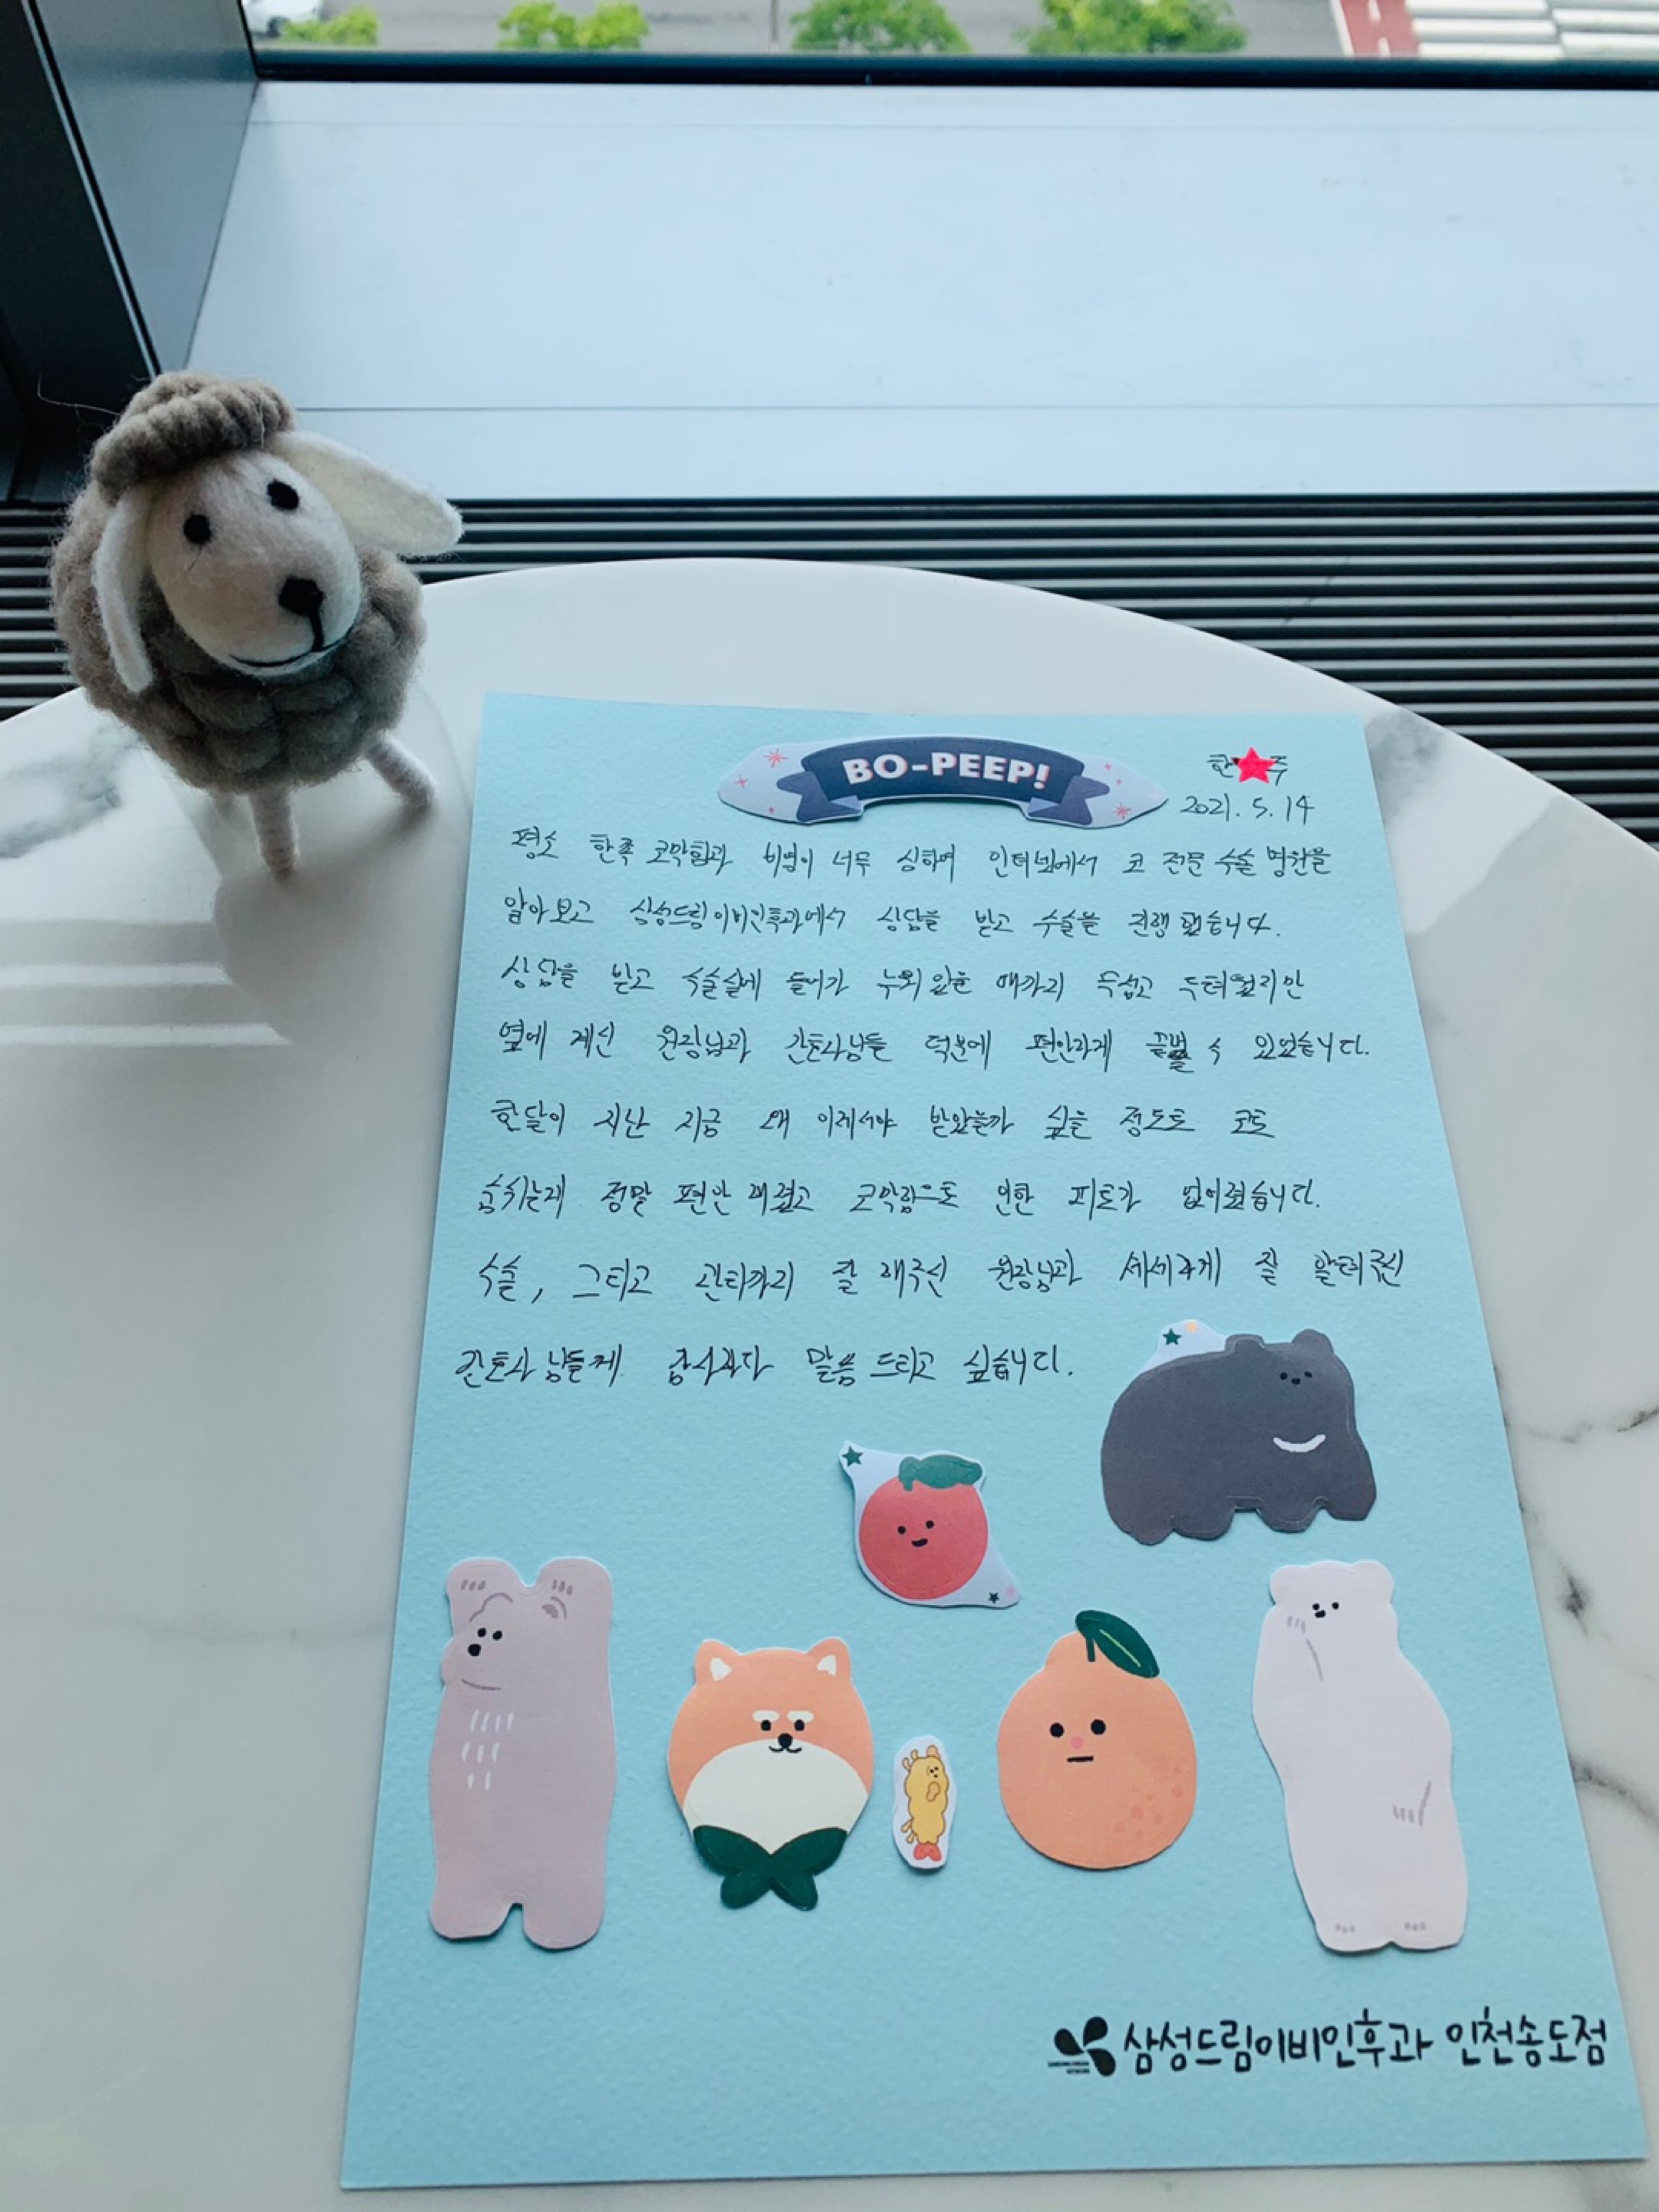 BO-PEEP!
한 주
2021. 5. 14
평소 한쪽 코막힘과 비염이 너무 심하여 인터넷에서 코 전문 수술 병원을
알아보고 삼성드림이비인후과에서 상담을 받고 수술을 진행했습니다.
상담을 받고 수술실에 들어가 누워 있을 때까지 무섭고 두려웠지만
옆에 계신 원장님과 간호사님들 덕분에 편안하게 끝낼 수 있었습니다.
한달이 지난 지금 왜 이제서야 받았을까 싶을 정도로 코로
숨쉬는게 정말 편안해졌고 코막힘으로 인한 피로가 없어졌습니다.
수술, 그리고 관리까지 잘 해주신 원장님과 세세하게 잘 알려주신
간호사님들께 감사하다 말씀드리고 싶습니다.
삼성드림이비인후과 인천송도점